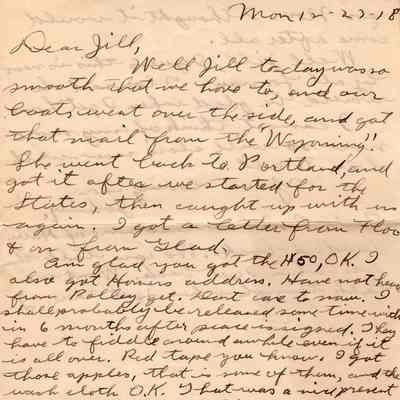 Mon 12-23-18
Dear Jill,
Well Jill today was so
smooth that we have to, and our
boats went over the side, and got
that mail from the "Wyoming"!!
She went back to Portland, and
got it after we started for the
States, then caught up with us
again. I got a letter from Floo
& on from Glad.
Am glad you got the $50, O.K. I
also got Homers address. Have not hear
from Polley yet. Dont care to now. I
shall probably be released some time with
in 6 months after peace is signed. They
have to fiddle around awhile even if it
is all over. Red tape you know. I got
those apples, that is some of them, and the
wash cloth O.K. That was a nice present